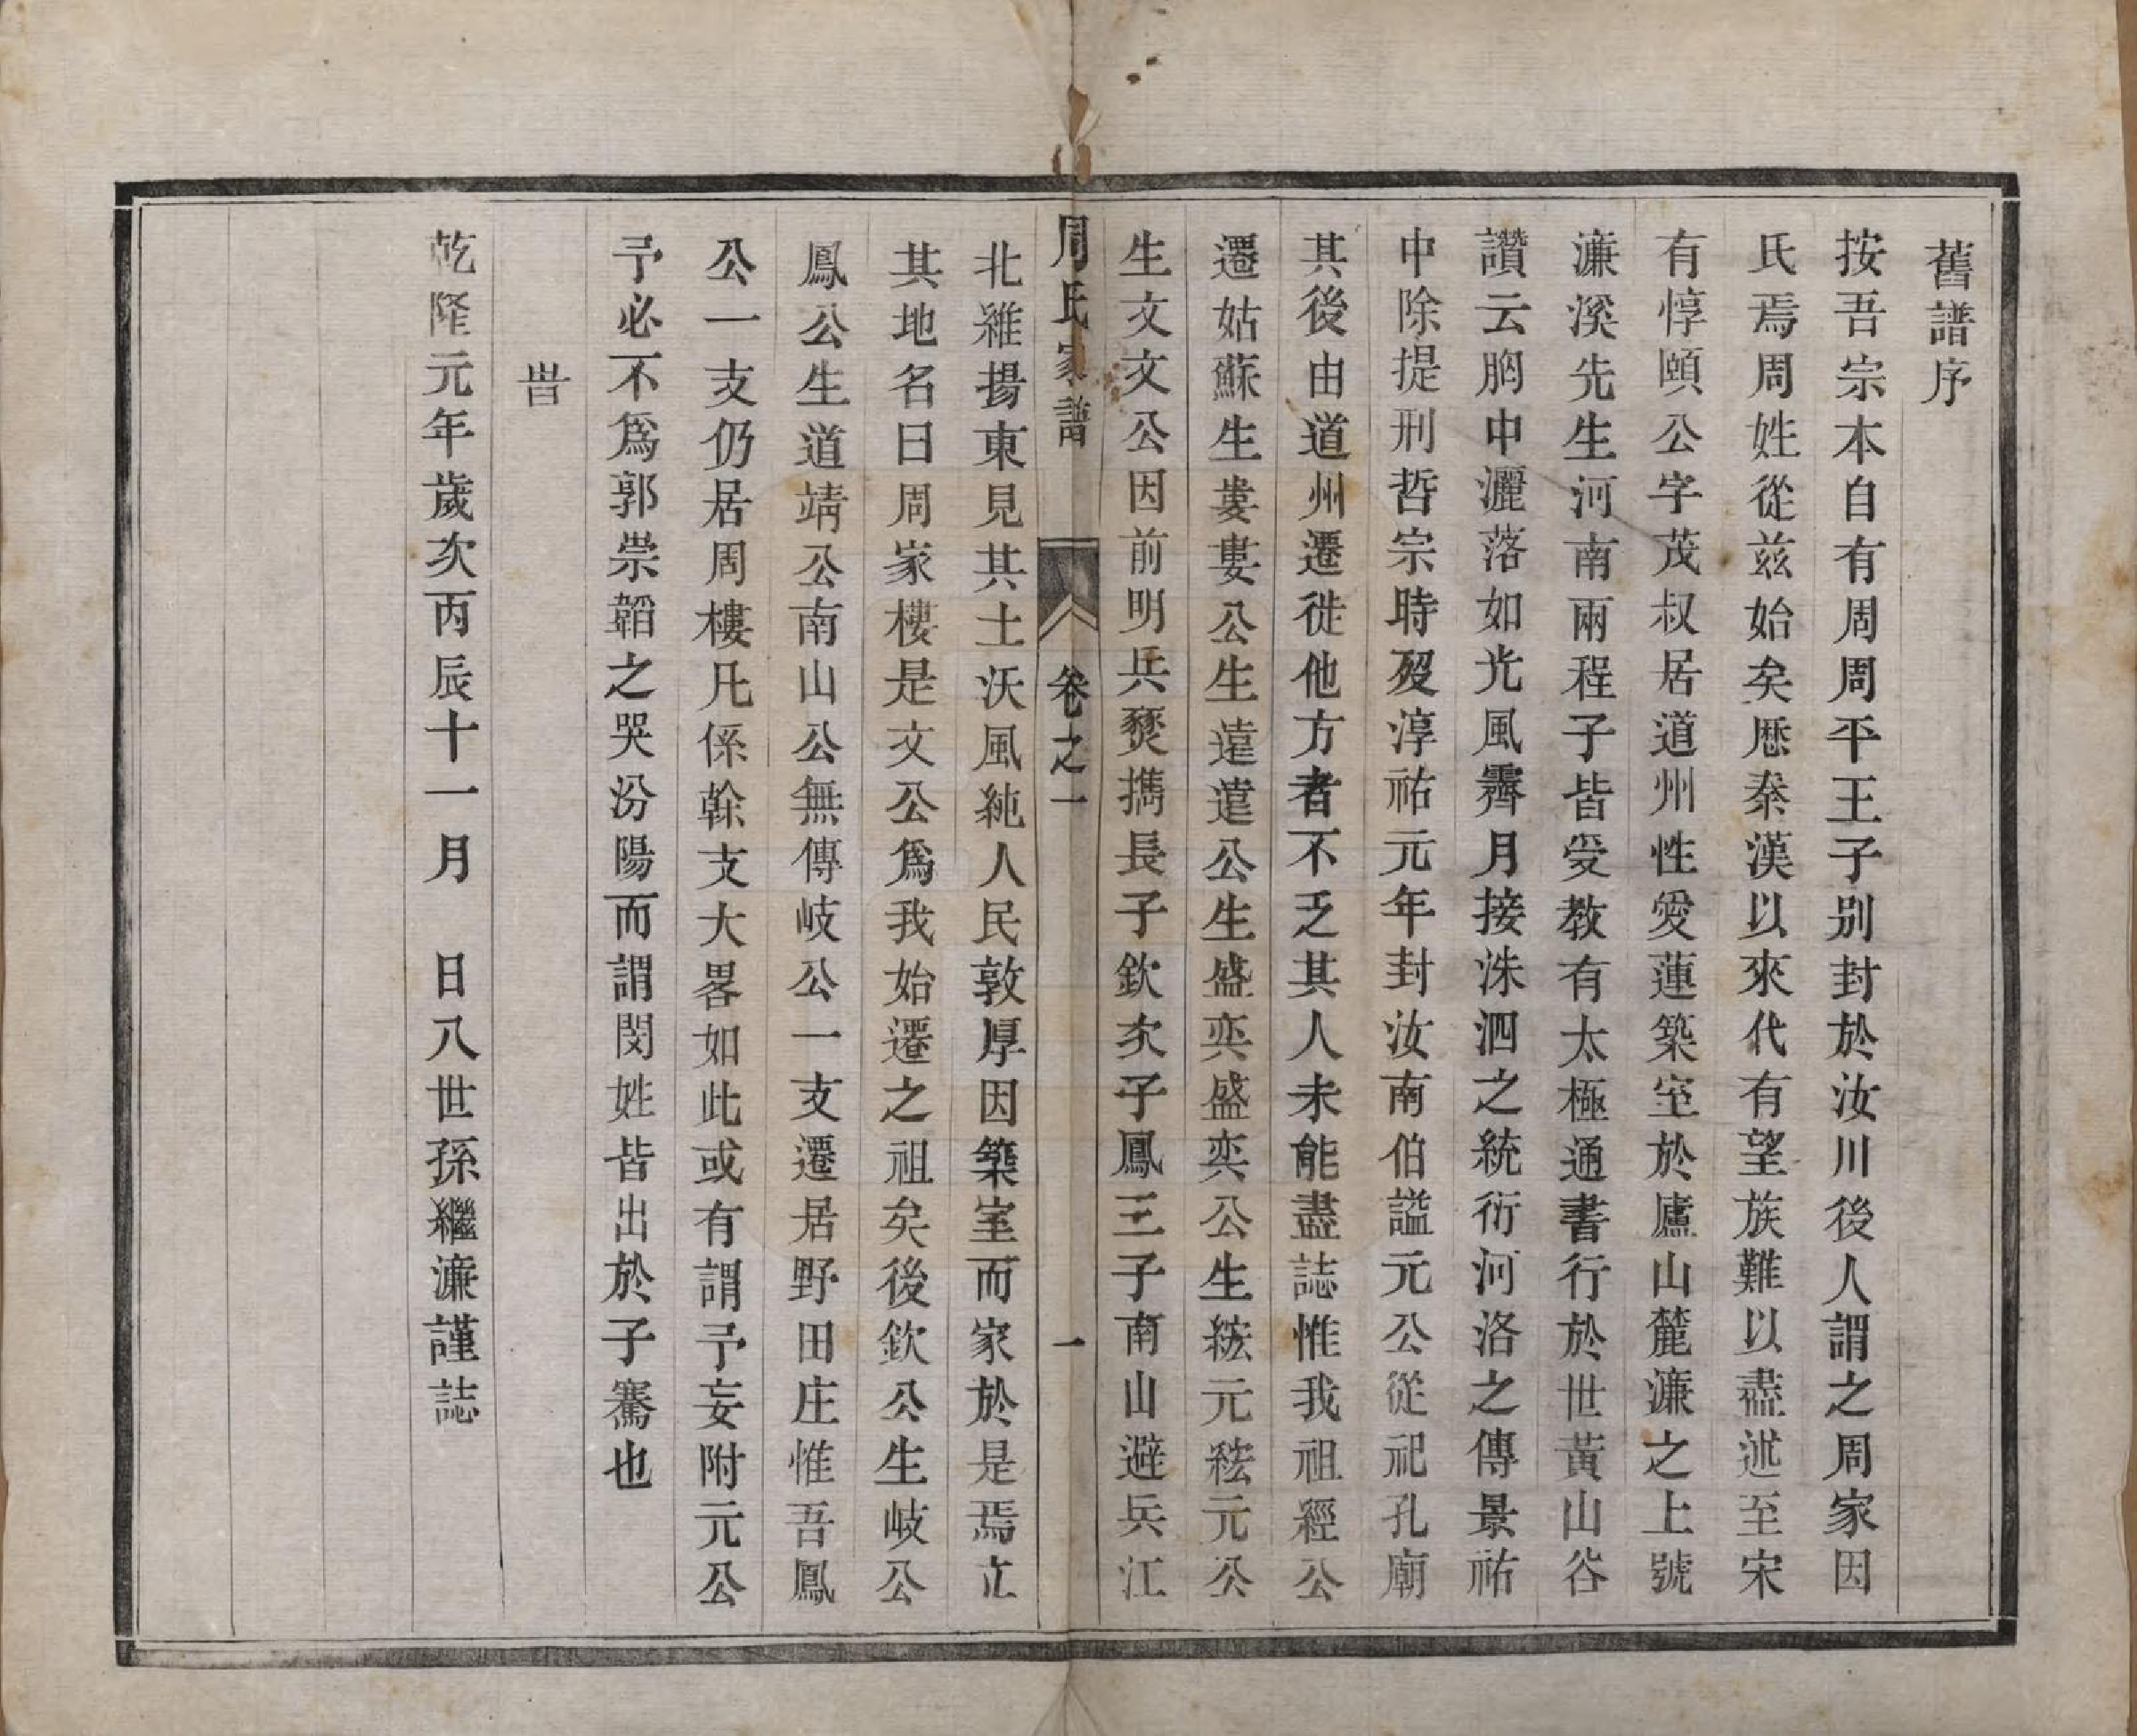 舊譜序
按吾宗本自有周周平王子别封於汝川後人謂之周家因
氏焉周姓從兹始矣厯秦漢以來代有望族難以盡述至宋
有惇頤公字茂叔居道州性愛蓮築室於廬山麓濂之上號
濂溪先生河南兩程子皆受教有太極通書行於世黃山谷
讚云胸中灑落如光風霽月接洙泗之統衍河洛之傳景祐
中除提刑哲宗時歿淳祐元年封汝南伯謚元公從祀孔廟
其後由道州遷徙他方者不乏其人未能盡誌惟我祖經公
遷姑蘇生婁婁公生遠遠公生盛奕盛奕公生紘元紘元公
生文文公因前明兵燹攜長子欽次子鳳三子南山避兵江
周氏家譜
卷之一
一
北維揚東見其土沃風純人民敦厚因築室而家於是焉立
其地名曰周家樓是文公爲我始遷之祖矣後欽公生岐公
鳳公生道靖公南山公無傳岐公一支遷居野田庄惟吾鳳
公一支仍居周樓凡係榦支大畧如此或有謂予妄附元公
予必不爲郭崇韜之哭汾陽而謂閔姓皆出於子騫也
旹
乾隆元年歲次丙辰十一月 日八世孫繼濂謹誌